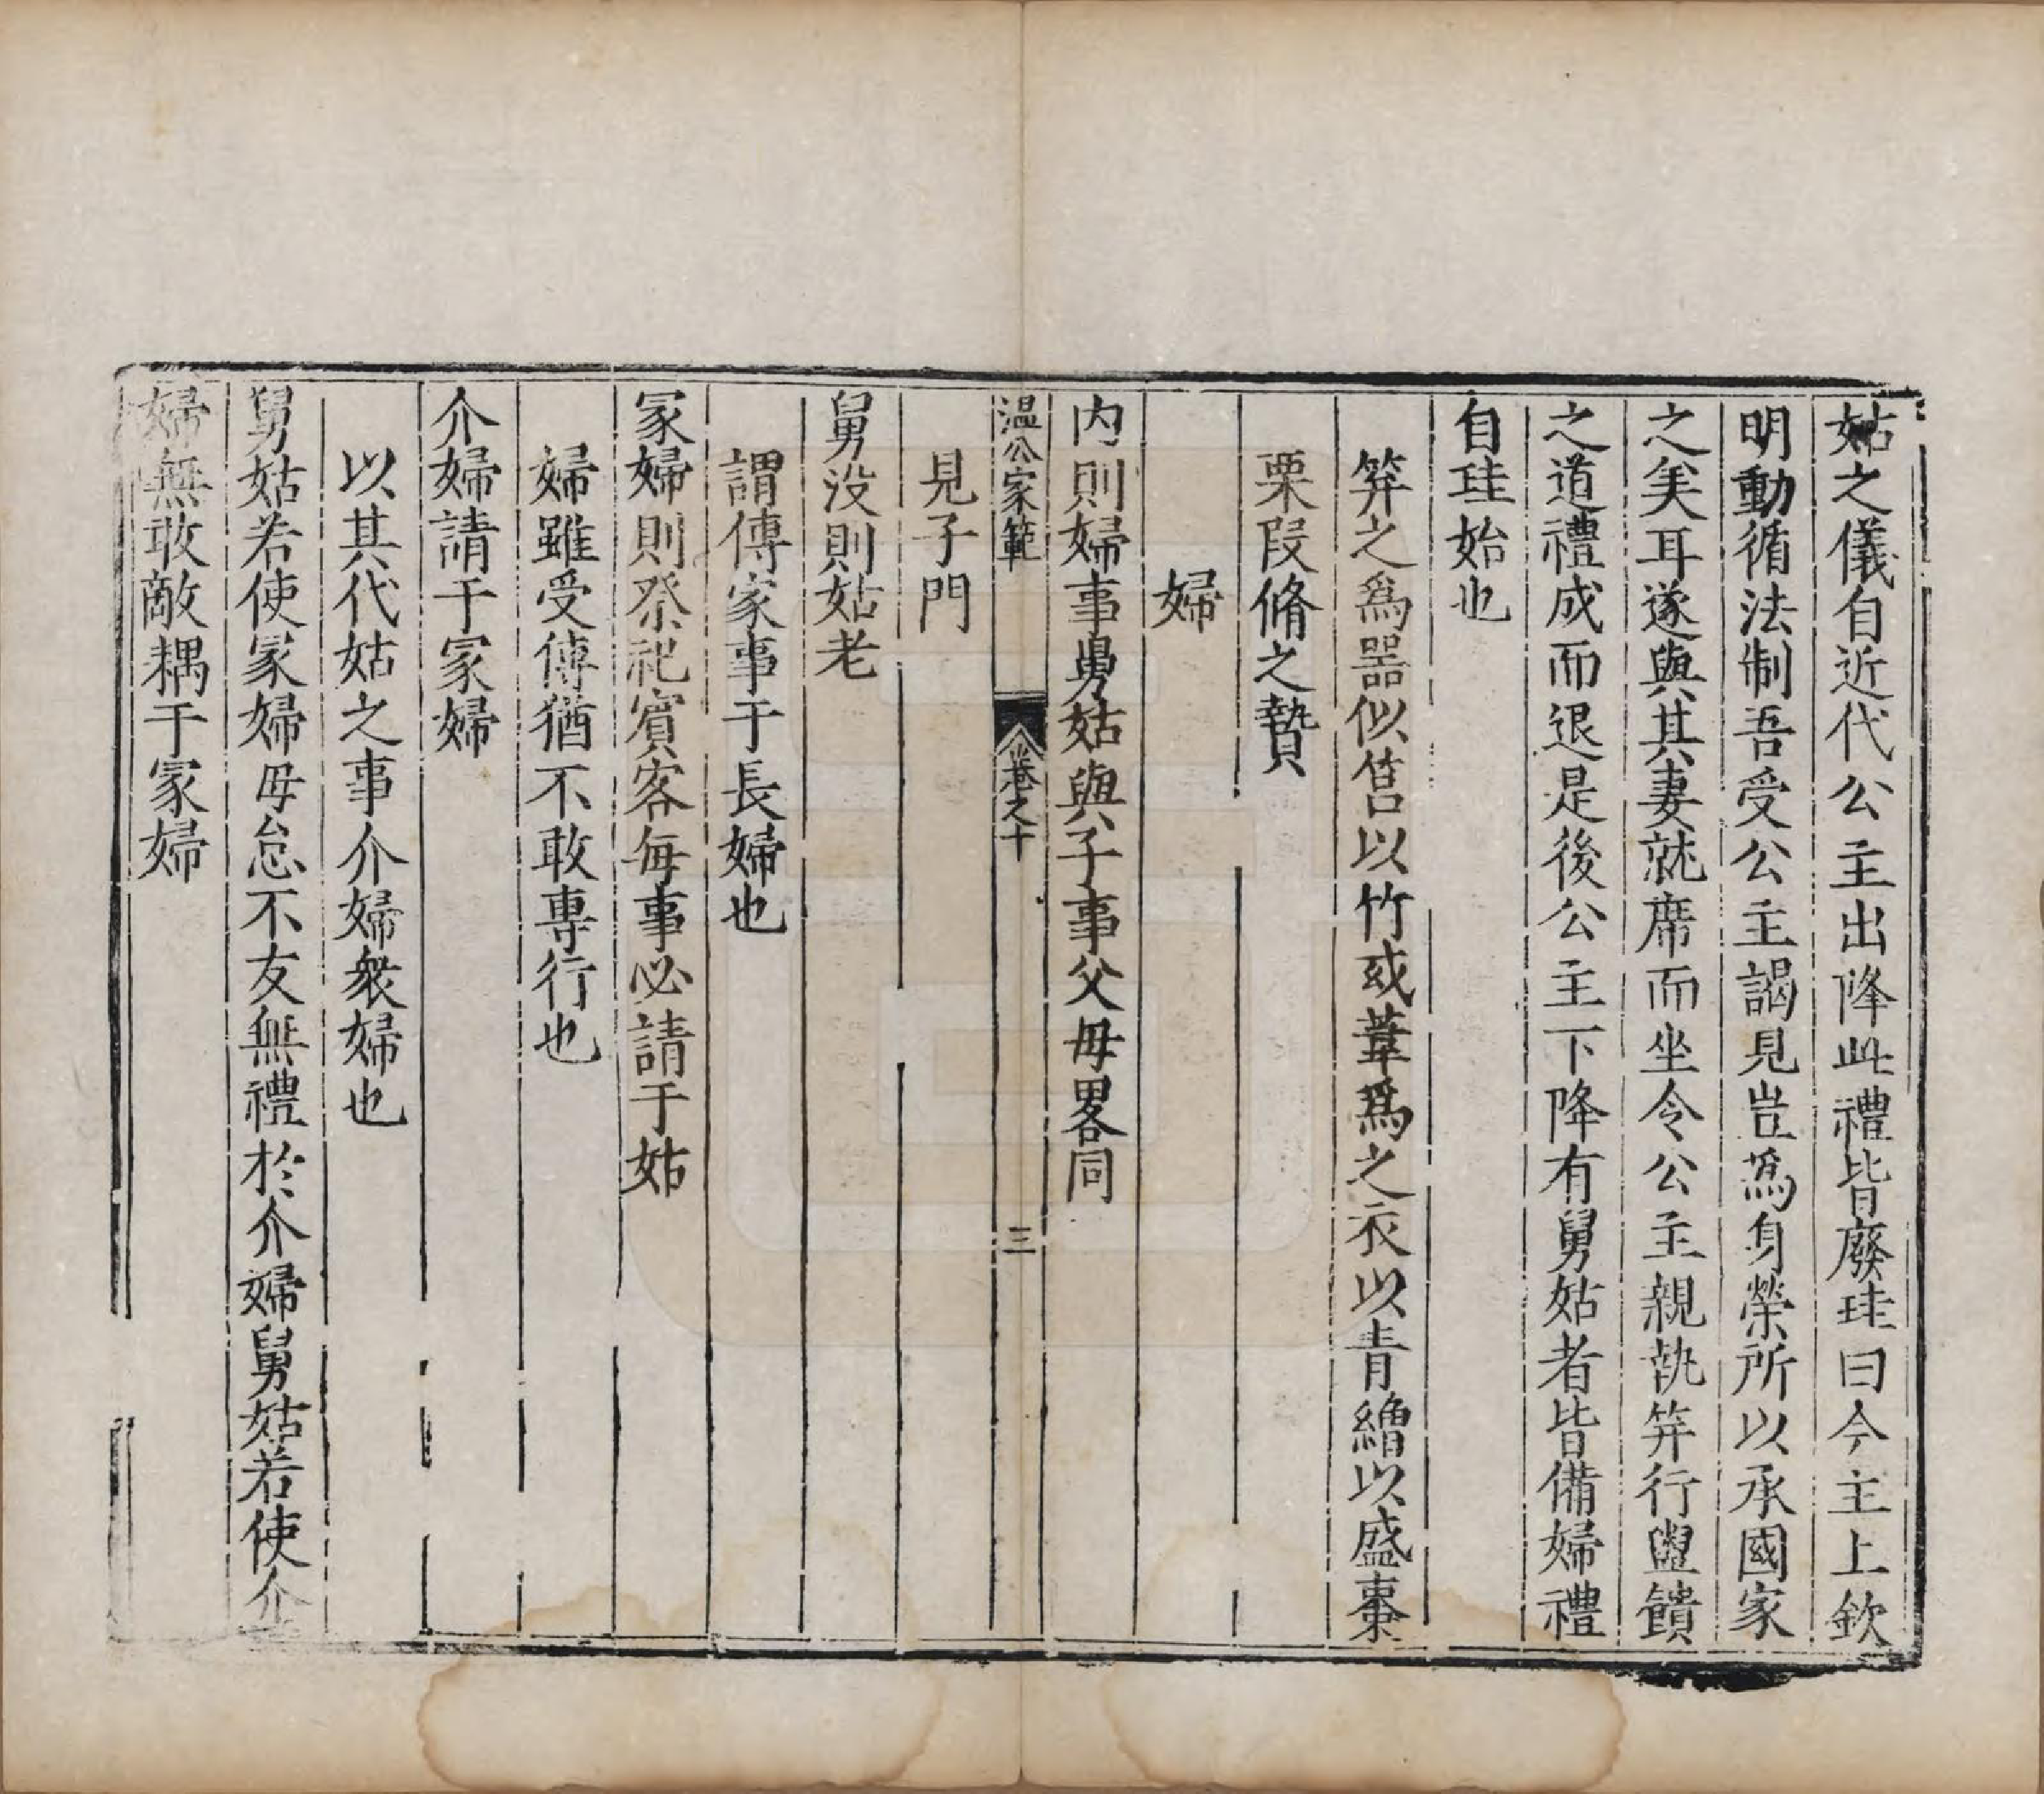 姑之儀自近代公主出降此禮皆廢珪曰今主上欽
明動循法制吾受公主謁見豈為身榮所以承國家
之美耳遂與其妻就席而坐令公主親執笲行盥饋
之道禮成而退是後公主下降有舅姑者皆備婦禮
自珪始也
笲之爲器似筥以竹或葦爲之衣以青繒以盛棗
栗段脩之贄
婦
内則婦事舅姑與子事父母畧同
温公家範 卷之十 三
見子門
舅没則姑老
謂傳家事于長婦也
冢婦則祭祀賓客每事必請于姑
婦雖受傳猶不敢專行也
介婦請于冢婦
以其代姑之事介婦衆婦也
舅姑若使冢婦毋怠不友無禮於介婦舅姑若使介
婦無敢敵耦于冢婦